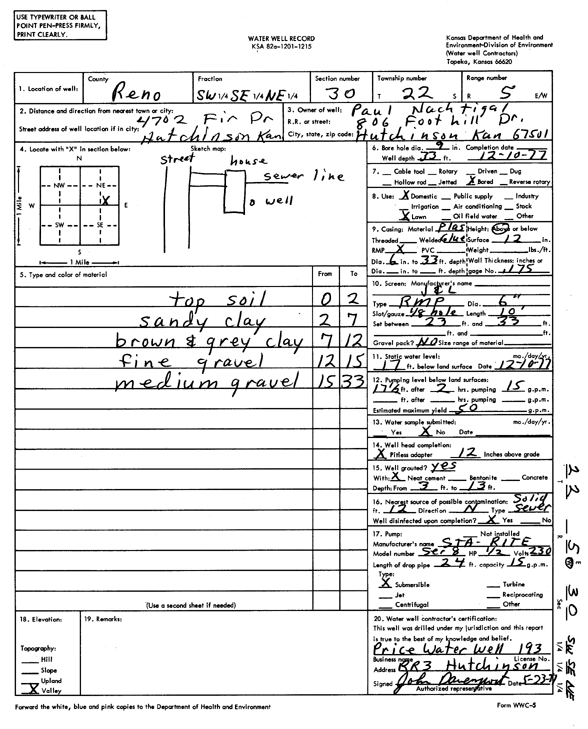 USE TYPEWRITER OR BALL
POINT PEN-PRESS FIRMLY,
PRINT CLEARLY.
WATER WELL RECORD
KSA 82a-1201-1215
Kansas Department of Health and
Environment-Division of Environment
(Water well Contractors)
Topeka, Kansas 66620
1. Location of well: County Reno Fraction SW 1/4 SE 1/4 NE 1/4 Section number 30 Township number T 22 S Range number R 5 E/W
2. Distance and direction from nearest town or city:
4702 Fir Dr
Street address of well location if in city:
Hutchinson Kan
3. Owner of well: Paul Nachtigal
R.R. or street: 806 Foothill Dr.
City, state, zip code: Hutchinson Kan 67501
4. Locate with "X" in section below:
N
NW NE
W X E
SW SE
S
1 Mile
1 Mile
Sketch map:
street house
sewer line
o well
6. Bore hole dia. 9 in. Completion date
Well depth 33 ft. 12-10-77
7. Cable tool Rotary Driven Dug
Hollow rod Jetted X Bored Reverse rotary
8. Use: X Domestic Public supply Industry
Irrigation Air conditioning Stock
X Lawn Oil field water Other
9. Casing: Material Plas Height: Above or below
Threaded Welded Glue Surface 12 in.
RMP X PVC Weight lbs./ft.
Dia. 6 in. to 33 ft. depth Wall Thickness: inches or
Dia. in. to ft. depth gage No. .175
5. Type and color of material From To
top soil 0 2
sandy clay 2 7
brown & grey clay 7 12
fine gravel 12 15
medium gravel 15 33
(Use a second sheet if needed)
10. Screen: Manufacturer's name
J & L
Type RMP Dia. 6"
Slot/gauze 1/8 hole Length 10'
Set between 23 ft. and 33 ft.
ft. and ft.
Gravel pack? NO Size range of material
11. Static water level: mo./day/yr.
17 ft. below land surface Date 12-10-77
12. Pumping level below land surfaces:
17½ ft. after 2 hrs. pumping 15 g.p.m.
ft. after hrs. pumping g.p.m.
Estimated maximum yield 50 g.p.m.
13. Water sample submitted: mo./day/yr.
Yes X No Date
14. Well head completion:
X Pitless adapter 12 Inches above grade
15. Well grouted? yes
With: X Neat cement Bentonite Concrete
Depth: From 3 ft. to 13 ft.
16. Nearest source of possible contamination: Solid
ft. 12 Direction N Type Sewer
Well disinfected upon completion? X Yes No
17. Pump: Not installed
Manufacturer's name STA-RITE
Model number Ser 8 HP 1/2 Volts 230
Length of drop pipe 24 ft. capacity 15 g.p.m.
Type:
X Submersible Turbine
Jet Reciprocating
Centrifugal Other
18. Elevation:
Topography:
Hill
Slope
Upland
X Valley
19. Remarks:
20. Water well contractor's certification:
This well was drilled under my jurisdiction and this report
is true to the best of my knowledge and belief.
Price Water Well 193
Business name License No.
Address RR3 Hutchinson
Signed John Davenport Date 5-23-79
Authorized representative
Forward the white, blue and pink copies to the Department of Health and Environment
Form WWC-5
T 22 R 5 E W Sec 30 SW 1/4 SE 1/4 NE 1/4